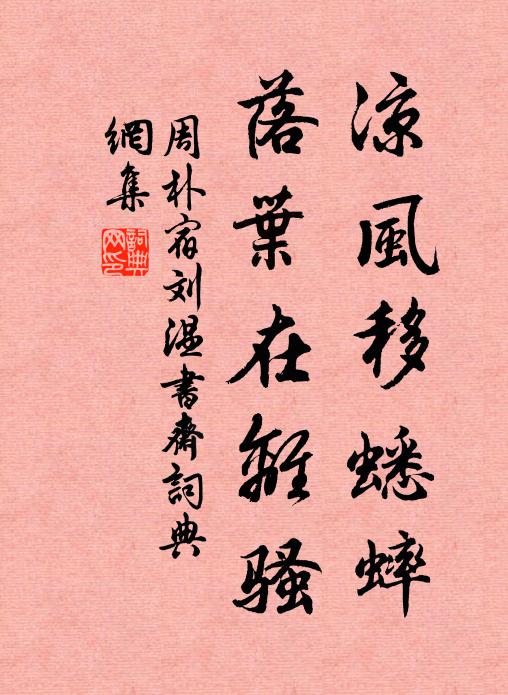 凉風移蟋蟀
落葉在離骚
周朴宿刘温書齋詞典
網集
詞典
网印